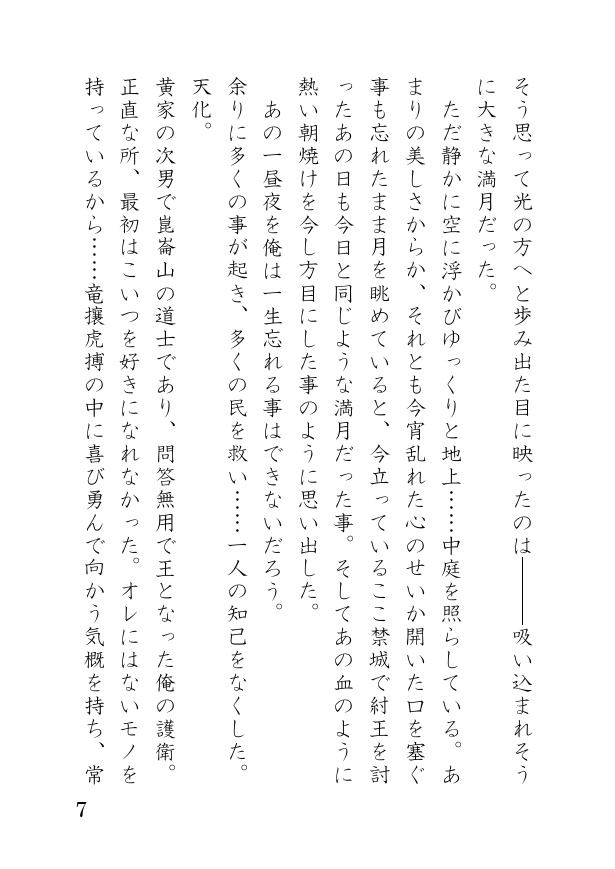 そう思って光の方へと歩み出た目に映ったのは――吸い込まれそう
に大きな満月だった。
　ただ静かに空に浮かびゆっくりと地上……中庭を照らしている。あ
まりの美しさからか、それとも今宵乱れた心のせいか開いた口を塞ぐ
事も忘れたまま月を眺めていると、今立っているここ禁城で紂王を討
ったあの日も今日と同じような満月だった事。そしてあの血のように
熱い朝焼けを今し方目にした事のように思い出した。
　あの一昼夜を俺は一生忘れる事はできないだろう。
余りに多くの事が起き、多くの民を救い……一人の知己をなくした。
天化。
黄家の次男で崑崙山の道士であり、問答無用で王となった俺の護衛。
正直な所、最初はこいつを好きになれなかった。オレにはないモノを
持っているから……竜攘虎搏の中に喜び勇んで向かう気概を持ち、常
7